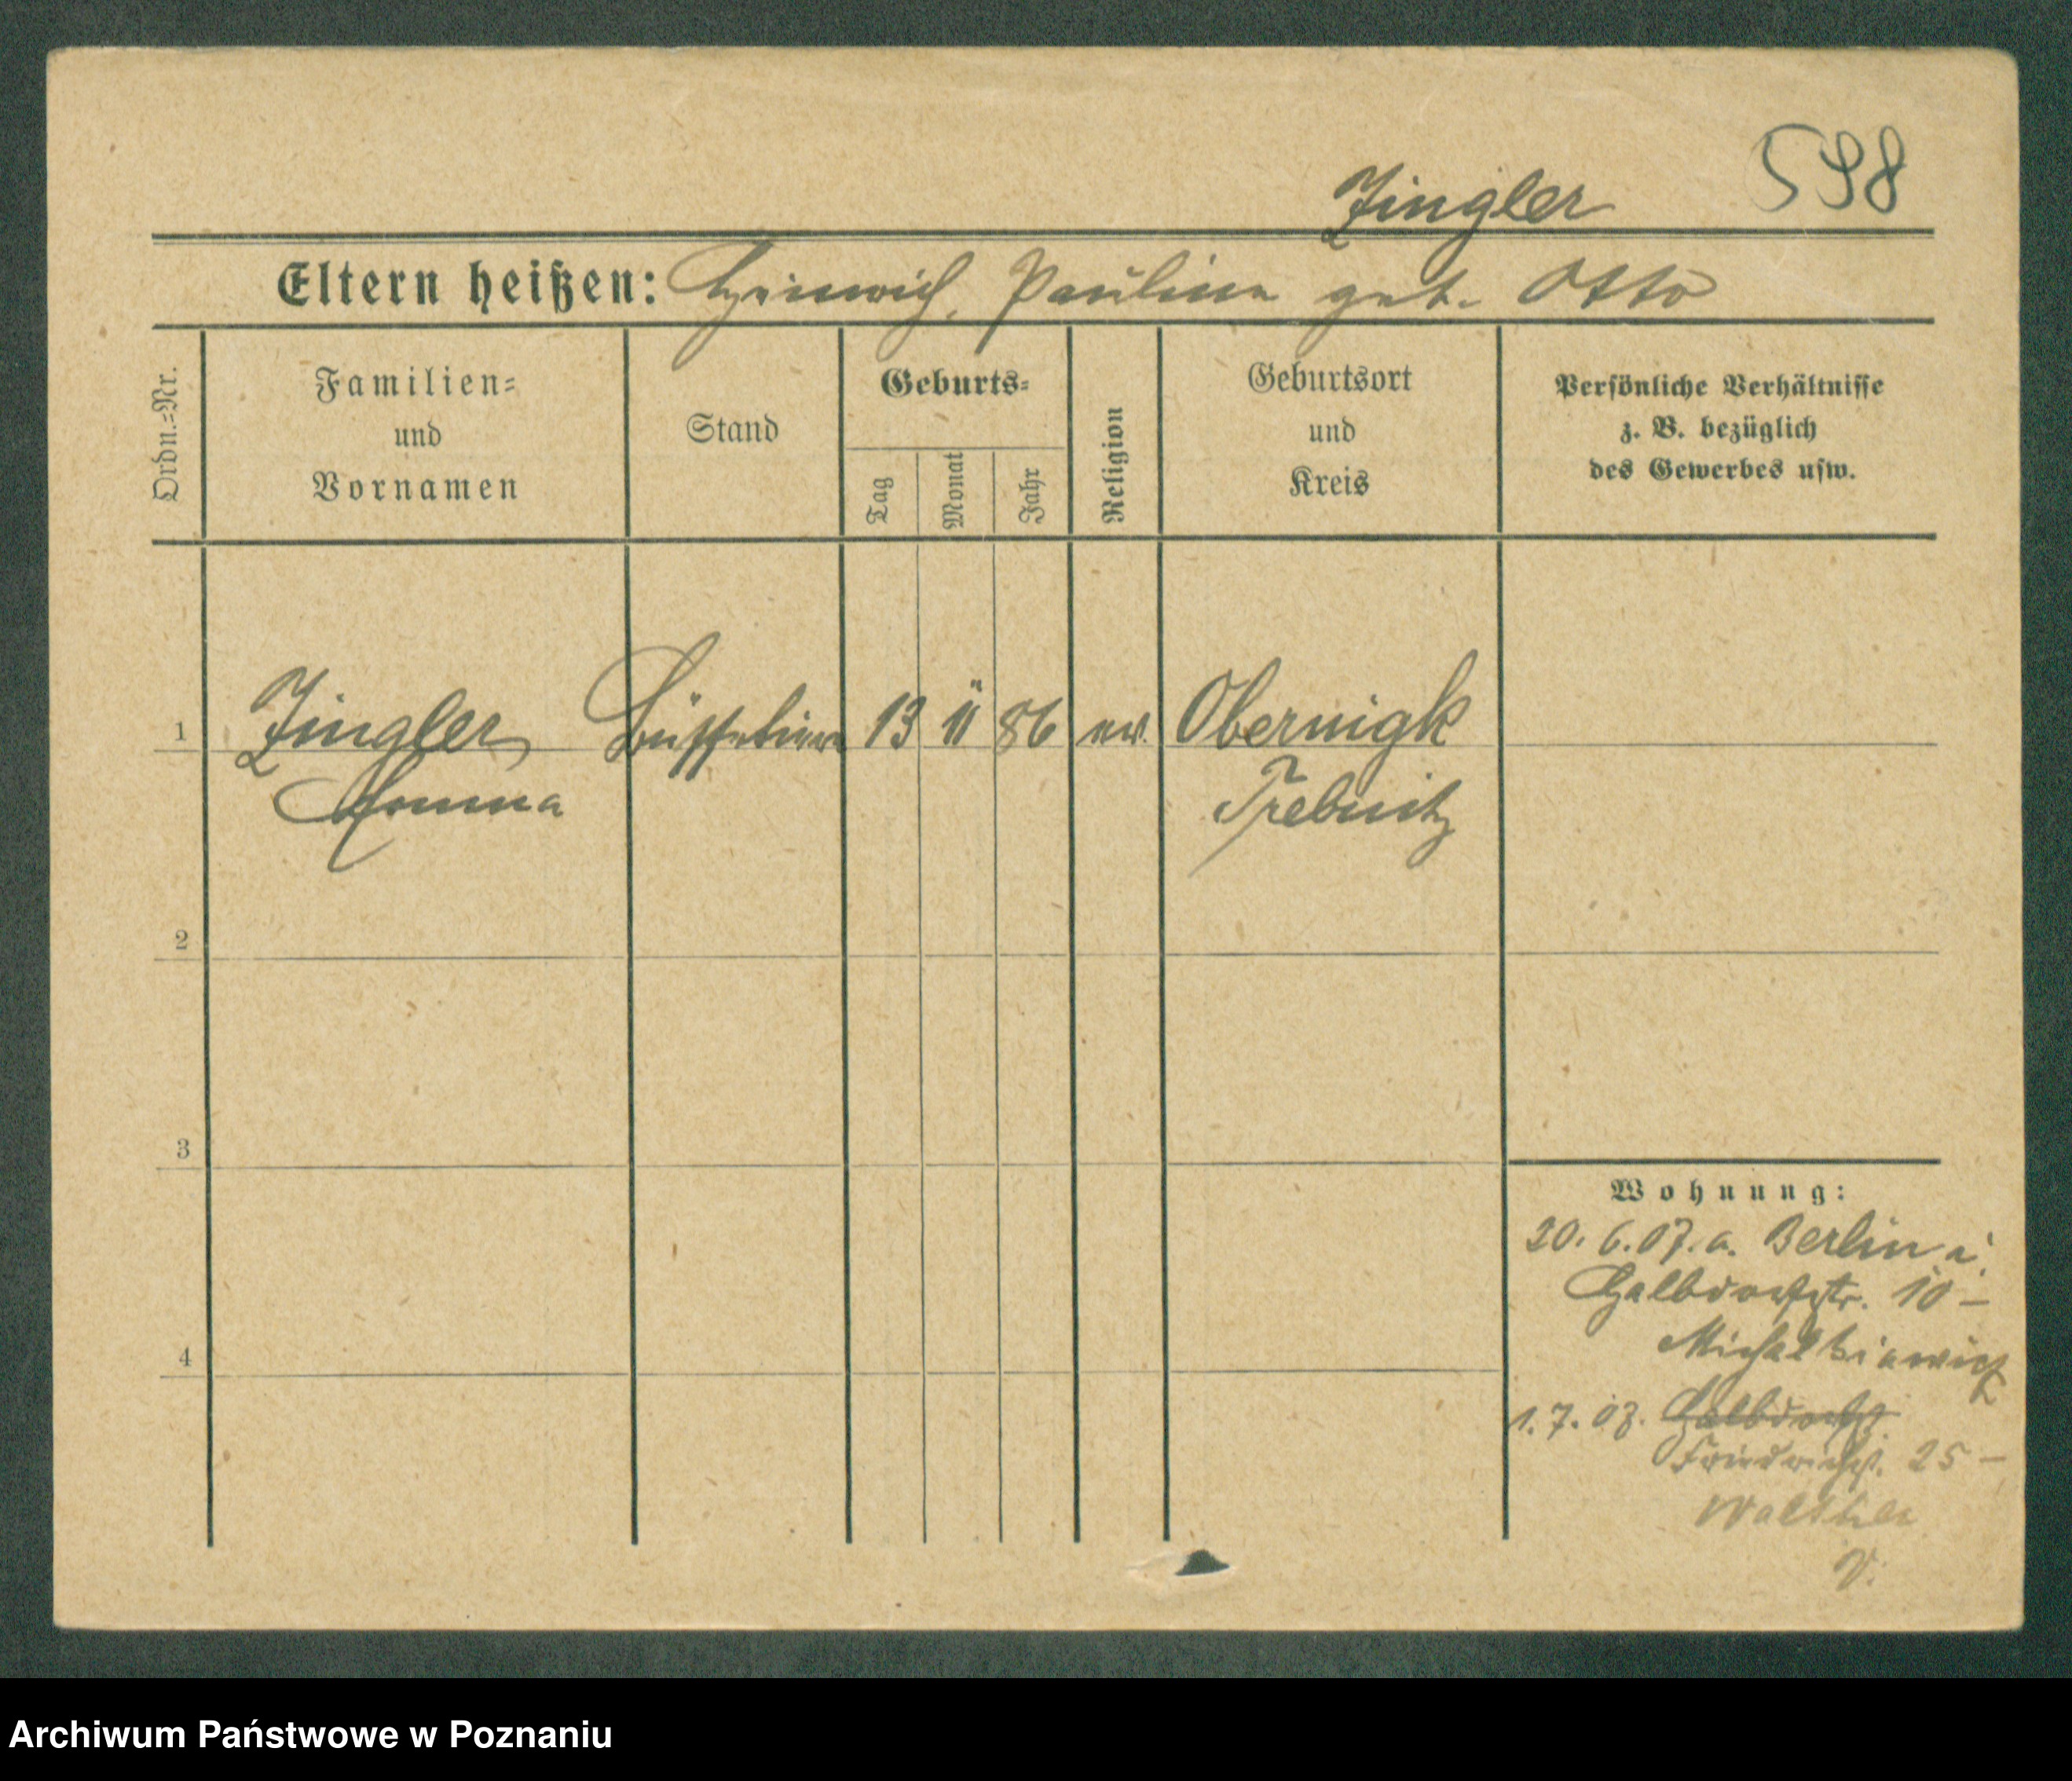 598
Zingler
Eltern heißen: Heinrich, Pauline geb. Otto
Ordn.=Nr.
Familien=
und
Vornamen
Stand
Geburts=
Tag
Monat
Jahr
Religion
Geburtsort
und
Kreis
Persönliche Verhältnisse
z. B. bezüglich
des Gewerbes usw.
1 Zingler Büffetiere 13 11 86 ev. Obernigk
Trebnitz
2
3
4
Wohnung:
20. 6. 07. a. Berlin i.
Halbdorfstr. 10 –
1. 7. 07. Halbdorfst.
Friedrichst. 25 –
Walther
V.
Archiwum Państwowe w Poznaniu